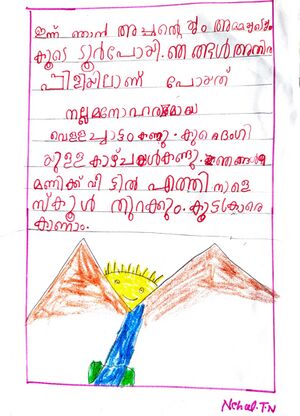 ഇന്ന് ഞാൻ അച്ഛന്റെയും അമ്മയുടെയും
കൂടെ ടൂർപോയി. ഞങ്ങൾ അതിര
പിള്ളിയിലാണ് പോയത്
നല്ല മനോഹരമായ
വെള്ളച്ചാട്ടം കണ്ടു. കുറെ ഭംഗി
യുള്ള കാഴ്ചകൾ കണ്ടു.
മണിക്ക് വീട്ടിൽ എത്തി നാളെ
സ്കൂൾ തുറക്കും. കൂട്ടുകാരെ
കാണാം.
Nehal.T.N